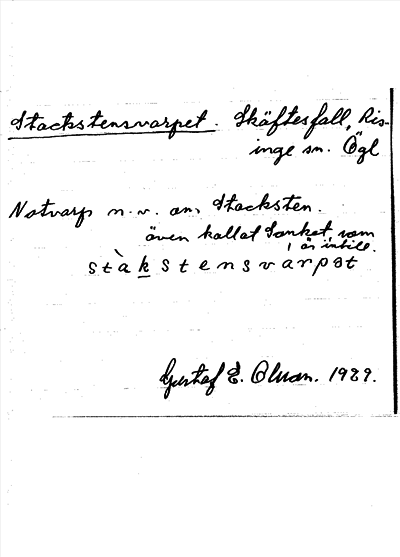 Stackstensvarpet. Skäftesfall, Ris-
inge sn. Ögl
Notvarp n.v. om Stacksten.
även kallat Sanket, som
är intill.
stàkstensvarpət
Gustaf E. Olman. 1929.